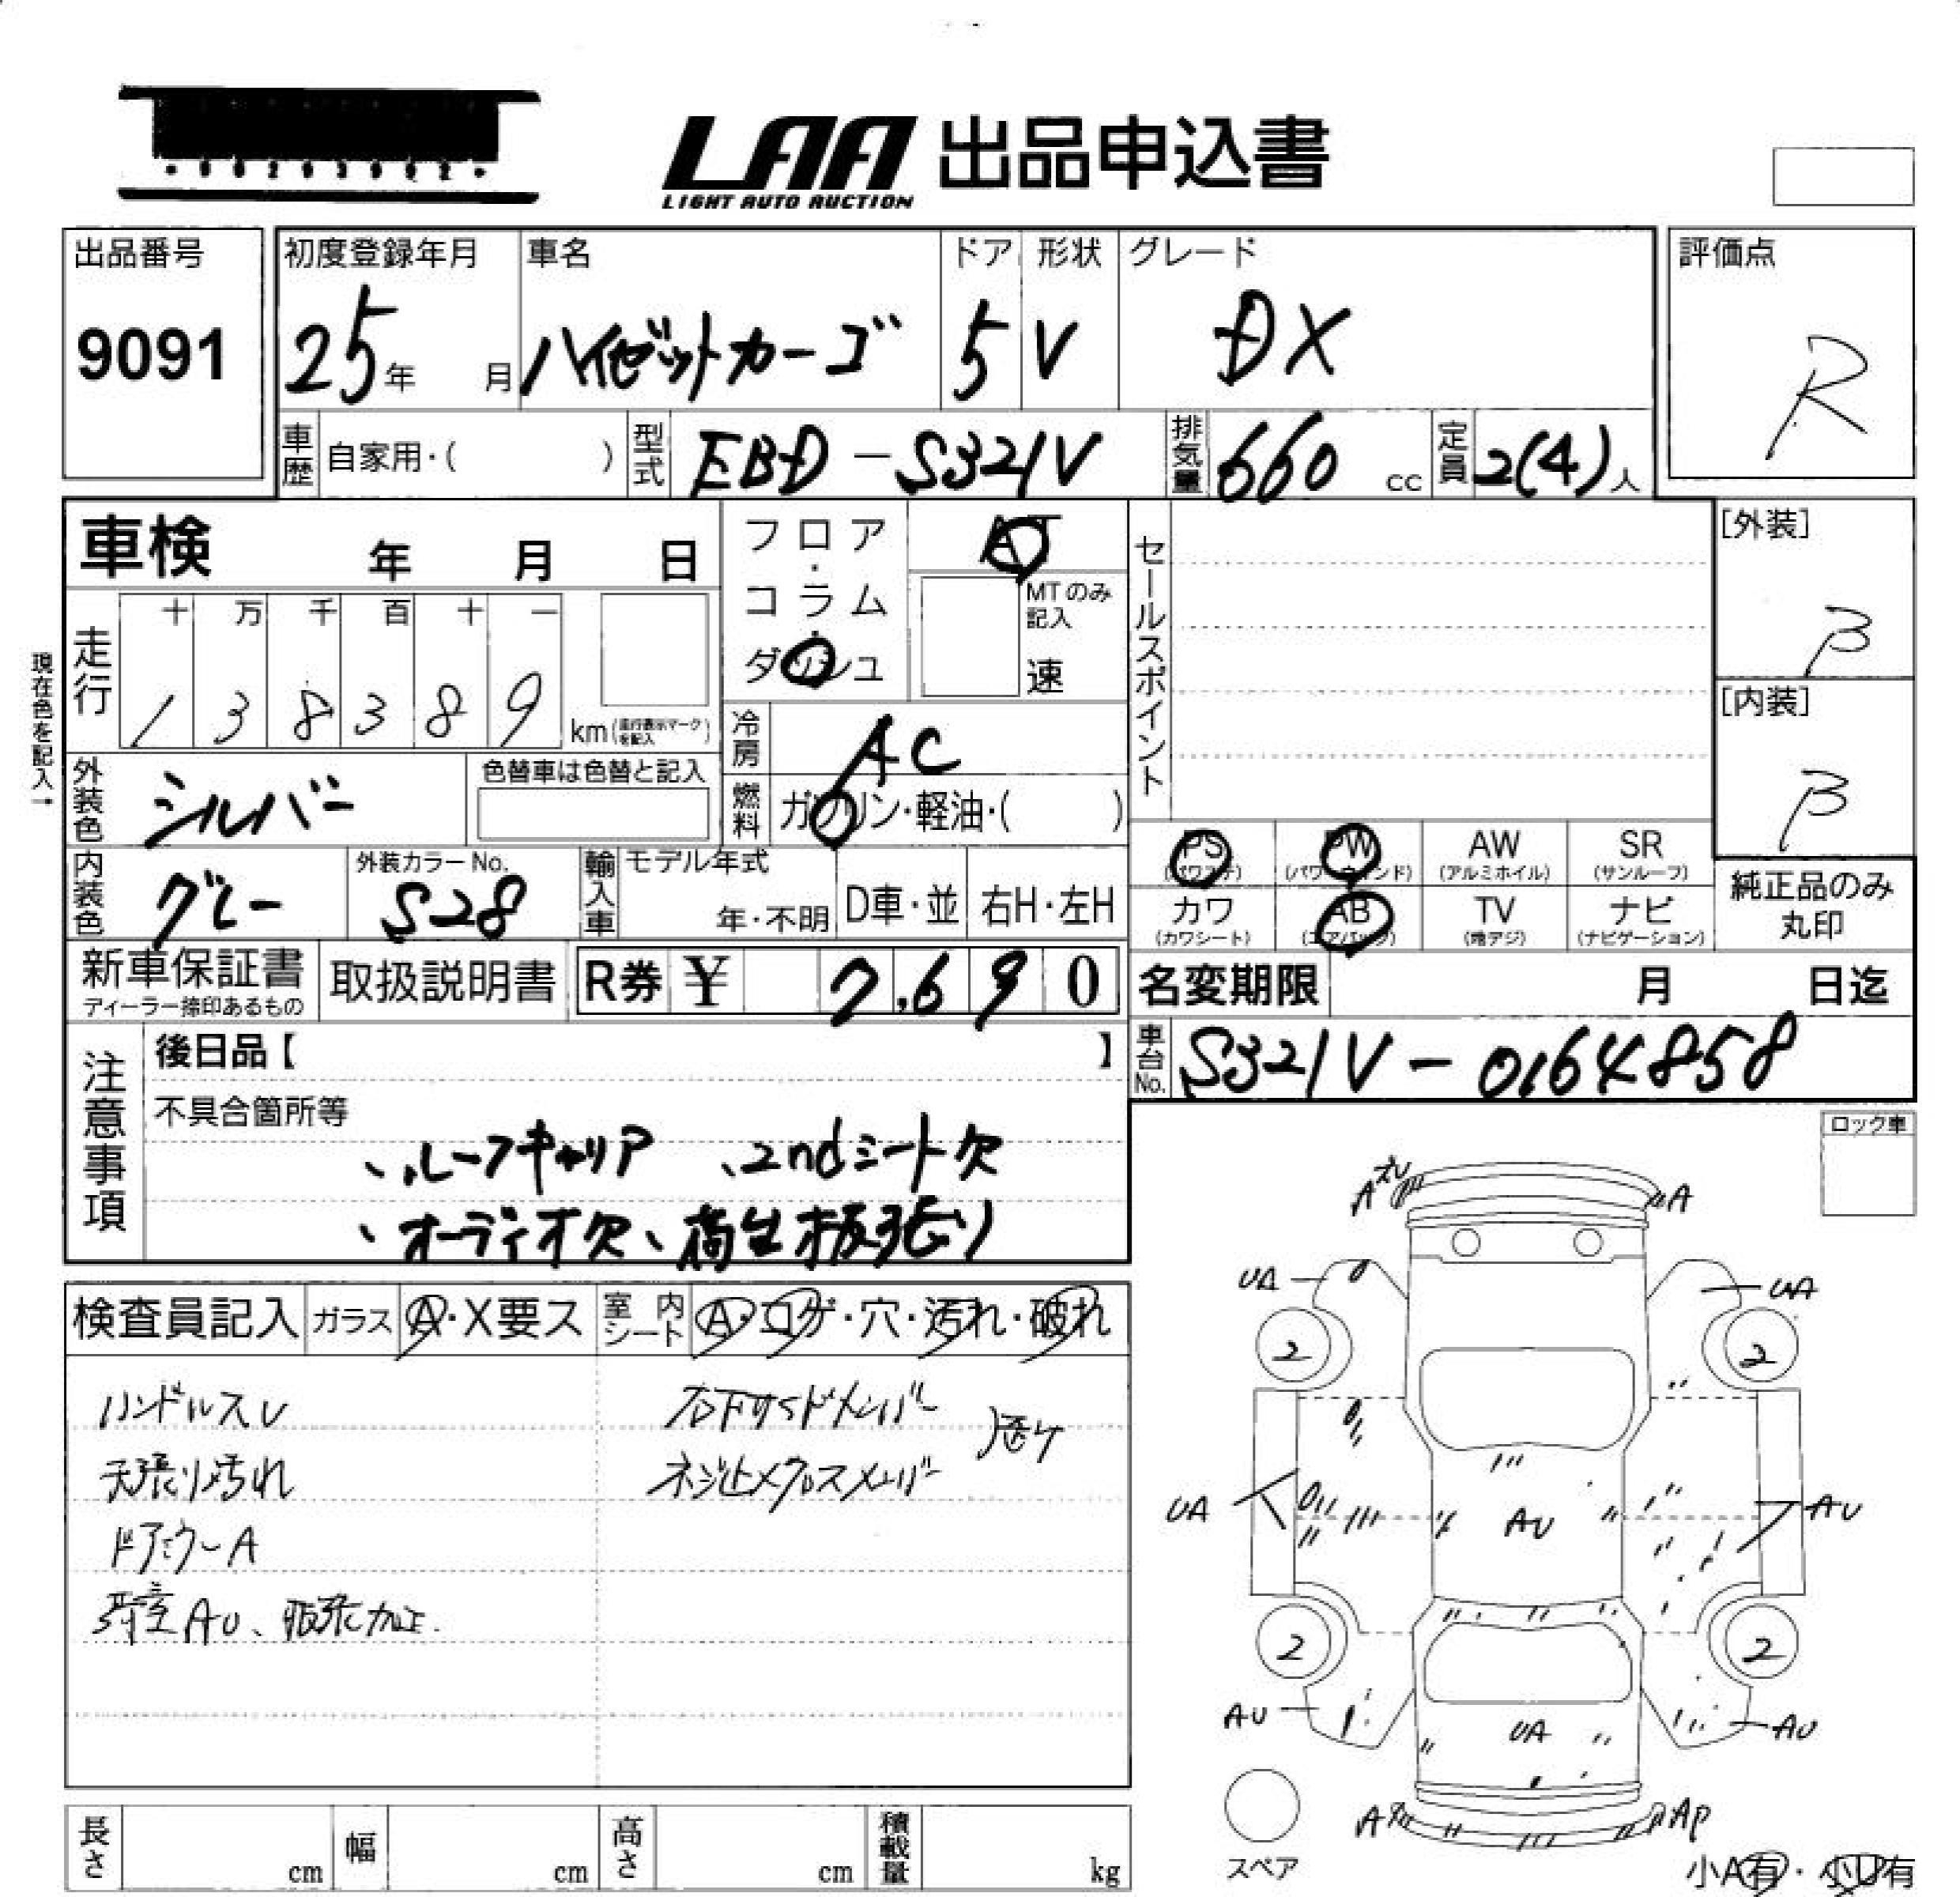 LAA 出品申込書
LIGHT AUTO AUCTION
出品番号
9091
初度登録年月
25年 月
車名
ハイゼットカーゴ
ドア
5
形状
V
グレード
DX
評価点
R
車歴 自家用・( )
型式 EBD-S321V
排気量 660 cc
定員 2(4)人
車検 年 月 日
フロア・コラム・ダッシュ
AT
MTのみ記入
速
セールスポイント
[外装]
B
[内装]
B
現在色を記入→
走行
十 万 千 百 十 一
1 3 8 3 8 9
km(走行表示マークを記入)
冷房 AC
外装色 シルバー
色替車は色替と記入
燃料 ガソリン・軽油・( )
内装色 グレー
外装カラーNo.
S28
輸入車 モデル年式
年・不明 D車・並 右H・左H
PS (パワステ)
PW (パワーウィンド)
AW (アルミホイル)
SR (サンルーフ)
カワ (カワシート)
AB (エアバッグ)
TV (地デジ)
ナビ (ナビゲーション)
純正品のみ
丸印
新車保証書
ディーラー捺印あるもの
取扱説明書
R券 ¥ 7,690
名変期限 月 日迄
車台No. S321V-0164858
注意事項
後日品【 】
不具合箇所等
、ルーフキャリア 、2ndシート欠
、オーディオ欠、荷室板張り
ロック車
検査員記入 ガラス A・X要ス 室内シート A・コゲ・穴・汚れ・破れ
ハンドルスレ
天張り汚れ
ドアミラーA
荷室AU、板張加工
右下サイドメンバー
ネジ止メクロスメンバー
A
A
UA
UA
2
2
UA
AU
AU
2
2
AU
UA
AU
A
AP
スペア
小A有・小U有
長さ cm
幅 cm
高さ cm
積載量 kg